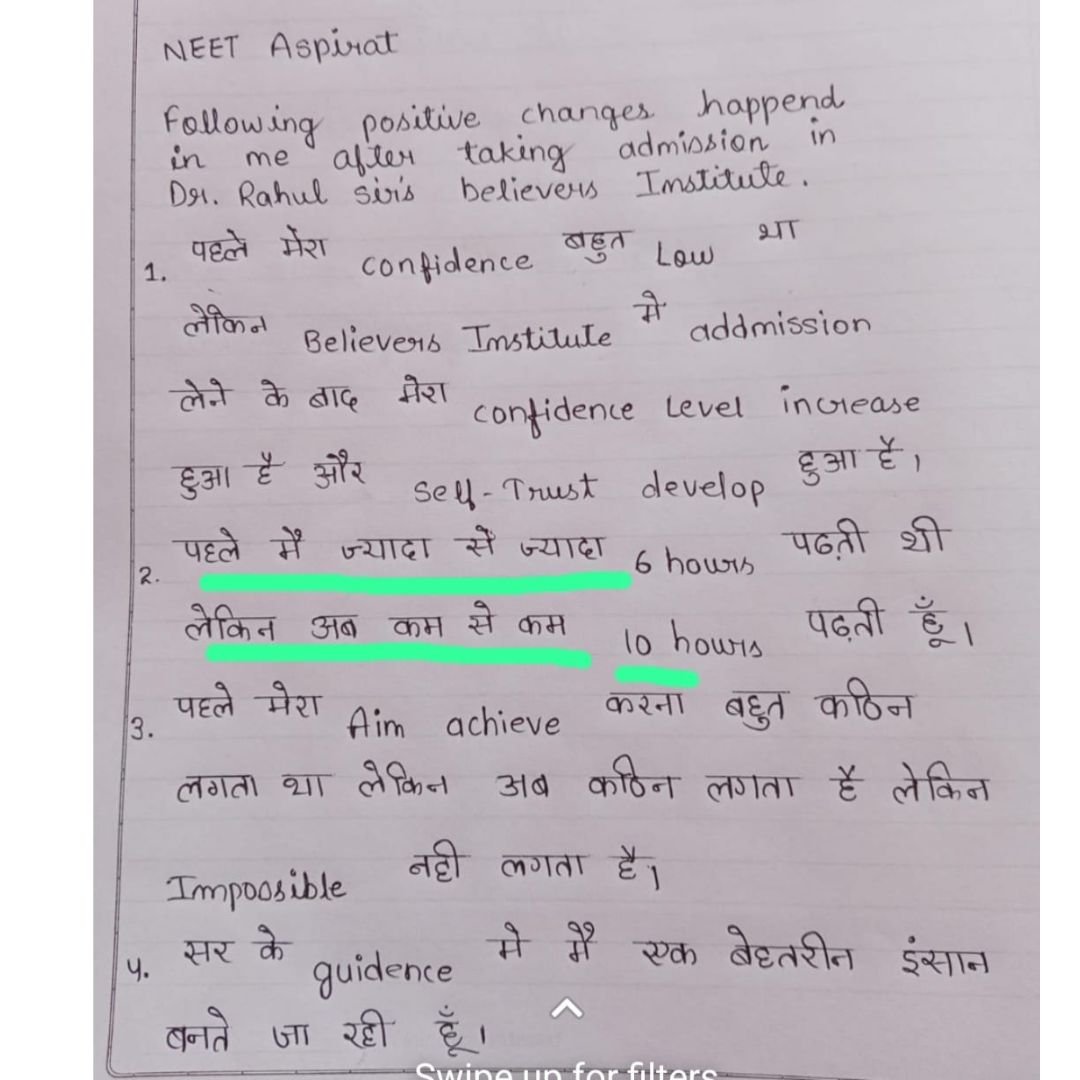 NEET Aspirat
Following positive changes happend
in me after taking admission in
Dr. Rahul sir's believers Institute.
1. पहले मेरा confidence बहुत Low था
लेकिन Believers Institute मे addmission
लेने के बाद मेरा confidence Level increase
हुआ है और Self-Trust develop हुआ है।
2. पहले मैं ज्यादा से ज्यादा 6 hours पढती थी
लेकिन अब कम से कम 10 hours पढ़ती हूँ।
3. पहले मेरा Aim achieve करना बहुत कठिन
लगता था लेकिन अब कठिन लगता है लेकिन
Impoosible नही लगता है।
4. सर के guidence मे मैं एक बेहतरीन इंसान
बनते जा रही हूँ।
Swipe up for filters